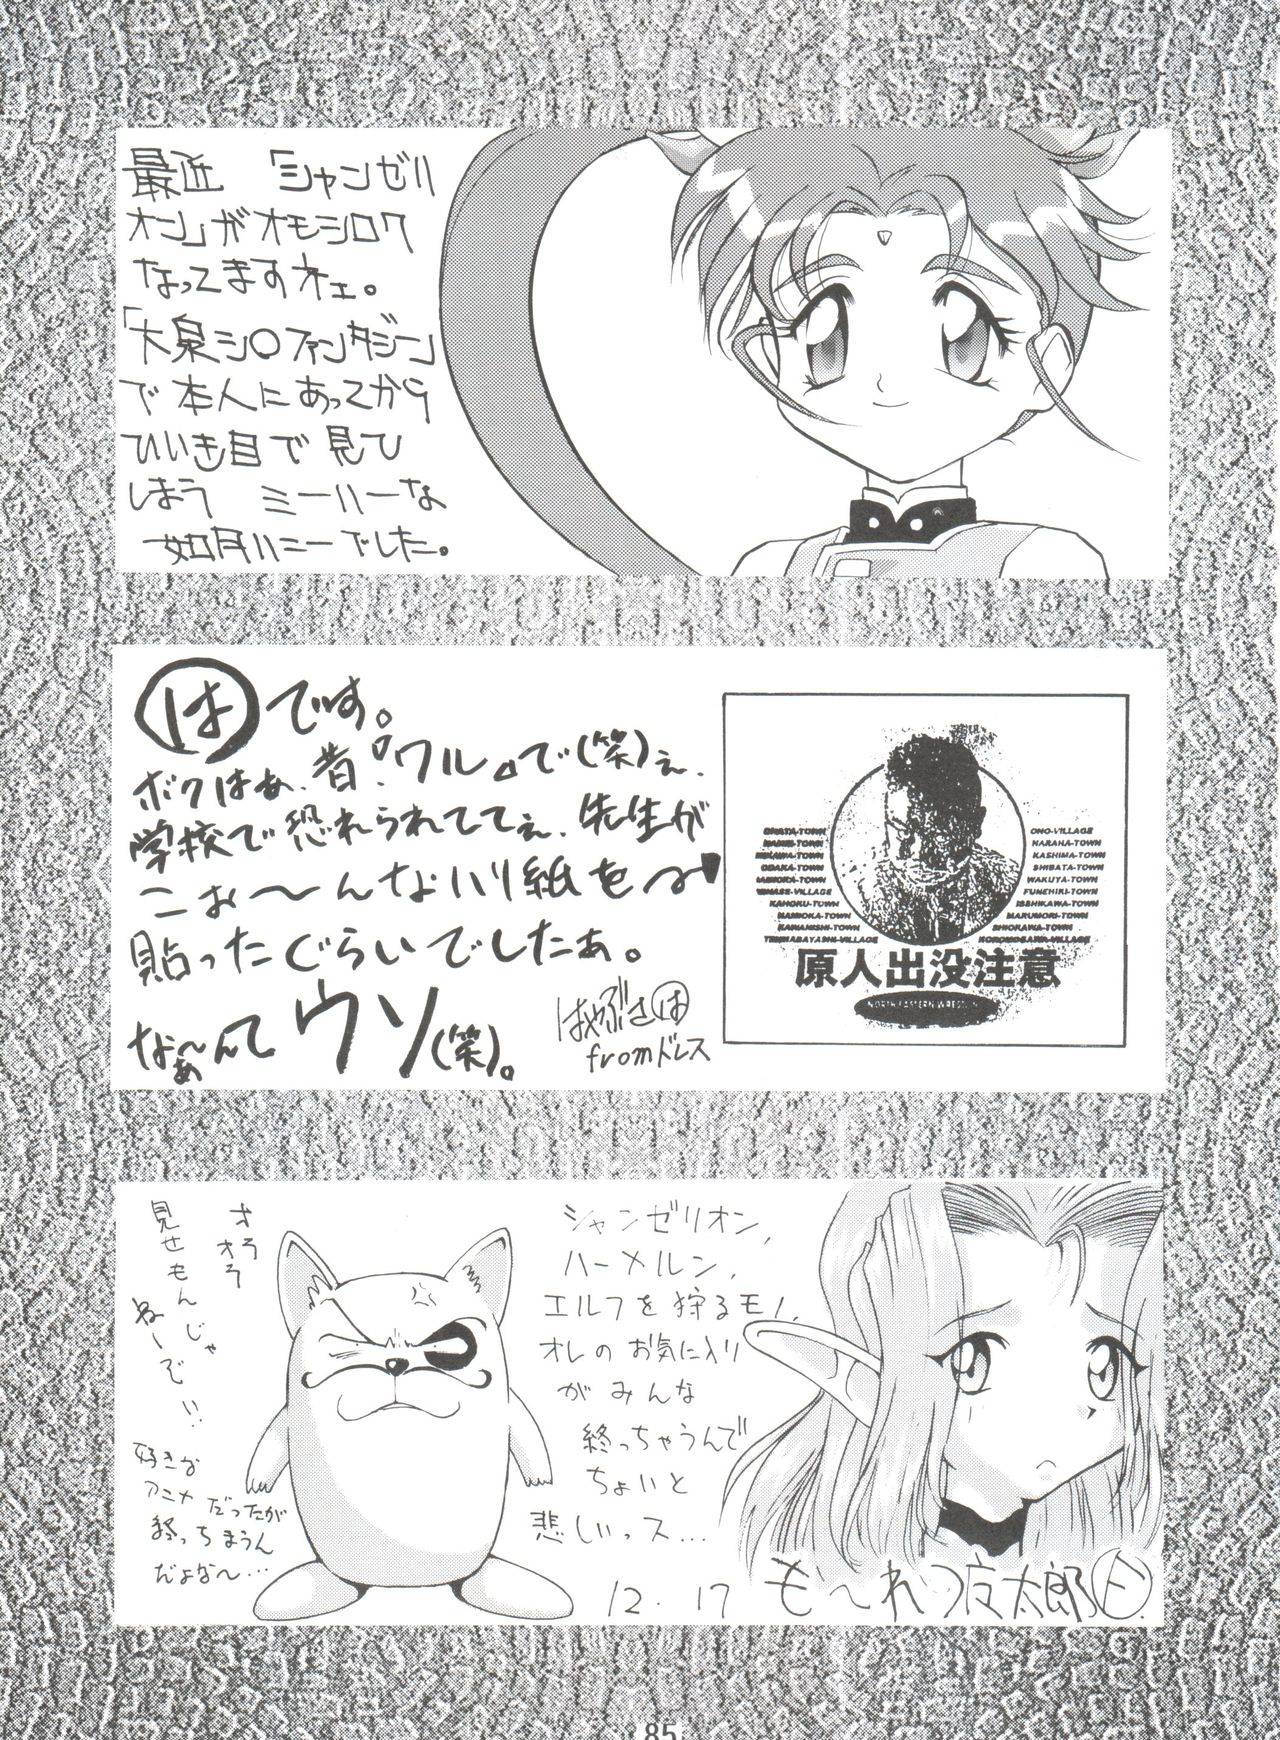 最近 「シャンゼリ
オン」がオモシロク
なってますネェ。
「大泉シ○ファンタジー」
で本人にあってから
ひいき目で見ひ
しまう ミーハーな
如月ハニーでした。
はです。
ボクはぁ、昔『ワル』で(笑)ぇ、
学校で恐れられててぇ、先生が
こぉ〜んなハリ紙を
貼ったぐらいでしたぁ。
なぁ〜んてウソ(笑)。
はやぶさは
fromドレス
ONO-VILLAGE
NARAHA-TOWN
KASHIMA-TOWN
SHIBATA-TOWN
WAKUYA-TOWN
FUNEHIKI-TOWN
ISSHIKAWA-TOWN
MARUMORI-TOWN
SHIOKAWA-TOWN
ODAKA-TOWN
KAHOKU-TOWN
KAMIOKA-TOWN
KAWANISHI-TOWN
TENNABAYASHI-VILLAGE
原人出没注意
NORTH EASTERN WRESTLIN
オろ
オろろ
見せもんじゃ
ねーでい!!
好きな
アニメだったが
終っちまうん
だよな〜…
シャンゼリオン、
ハーメルン、
エルフを狩るモノ、
オレのお気に入り
がみんな
終っちゃうんで
ちょいと
悲しいっス…
12.17
も〜れつ夜太郎
85